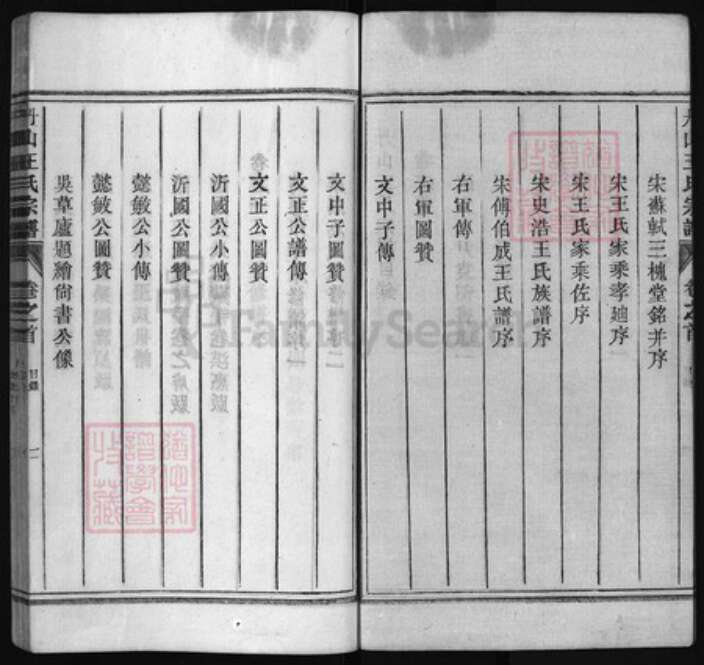 宋蘇軾三槐堂銘并序
宋王氏家乘孝廸序
宋王氏家乘佐序
宋史浩王氏族譜序
宋傅伯成王氏譜序
右軍傳
右軍圖贊
文中子傳
文中子圖贊
文正公譜傳
文正公圖贊
沂國公小傳
沂國公圖贊
懿敏公小傳
懿敏公圖贊
吳草廬題繪尙書公像
丹山王氏宗譜
卷之首
目錄
FamilySearch